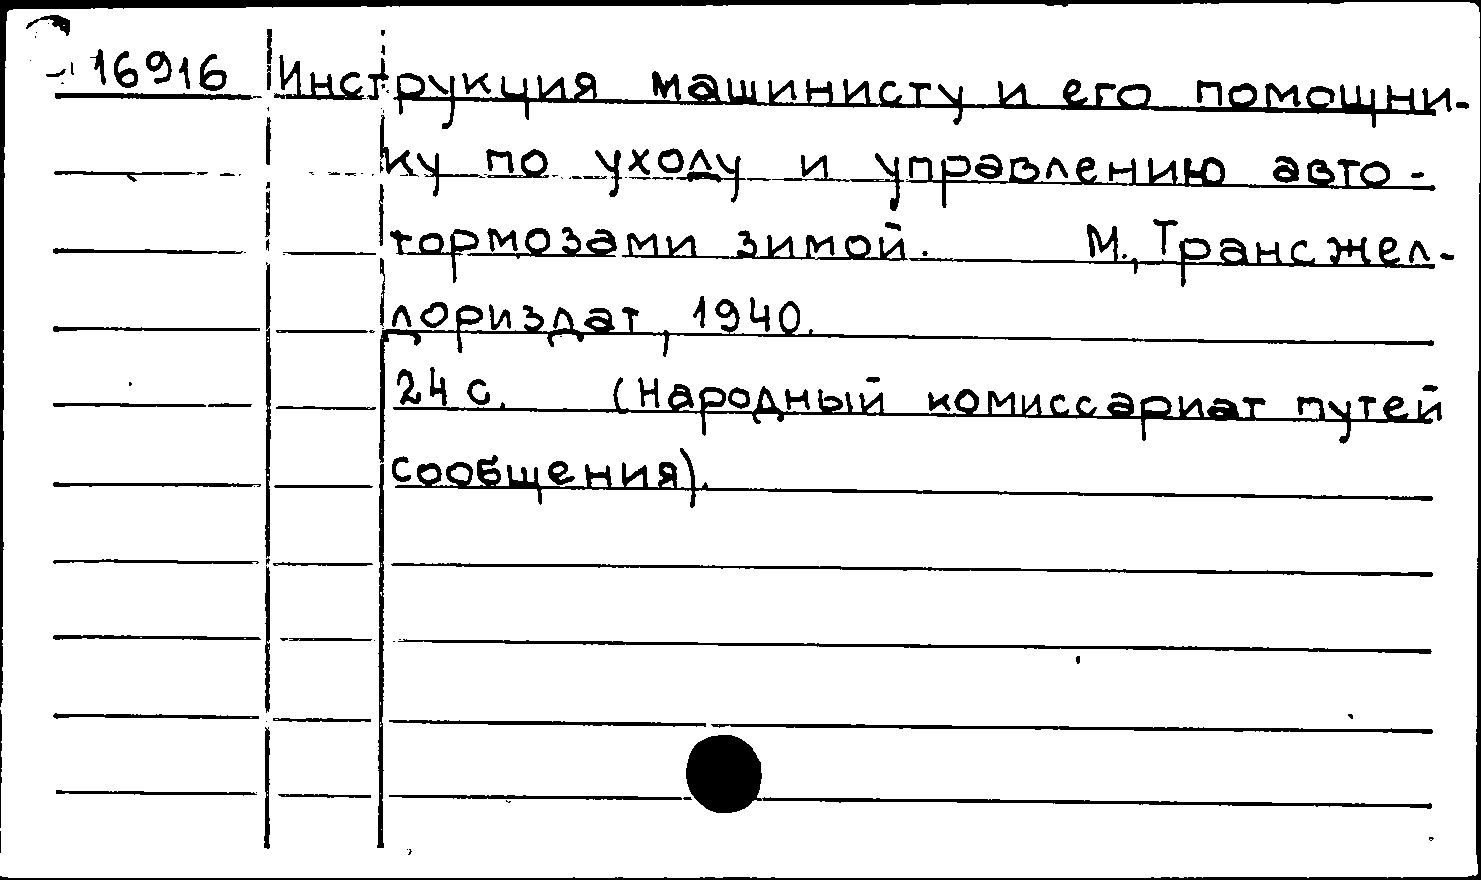 16916 Инструкция машинисту и его помощни-
ку по уходу и управлению авто-
тормозами зимой. М., Трансжел-
дориздат, 1940.
24 с. (Народный комиссариат путей
сообщения).